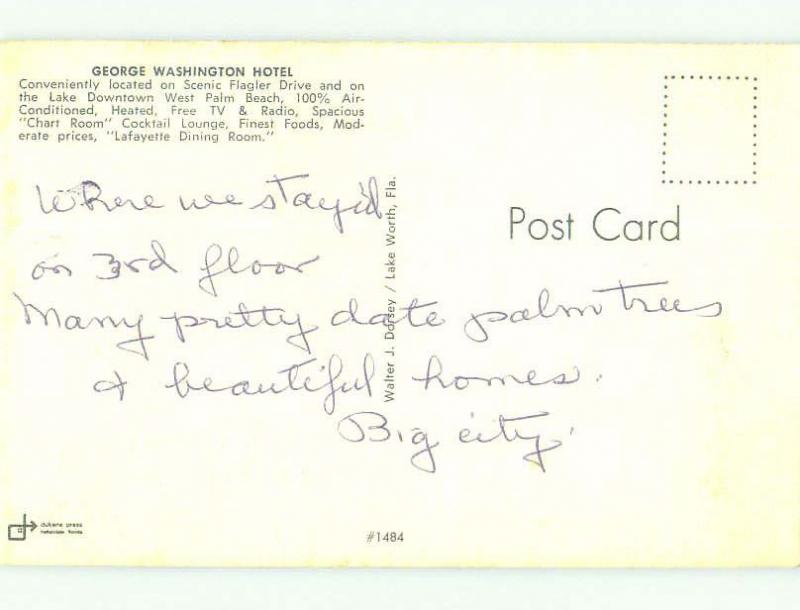 GEORGE WASHINGTON HOTEL
Conveniently located on Scenic Flagler Drive and on
the Lake Downtown West Palm Beach, 100% Air-
Conditioned, Heated, Free TV & Radio, Spacious
"Chart Room" Cocktail Lounge, Finest Foods, Mod-
erate prices, "Lafayette Dining Room."
Where we stay'd
on 3rd floor
Many pretty date palm trees
& beautiful homes.
Big city.
Walter J. Dorsey / Lake Worth, Fla.
Post Card
dukane press
#1484